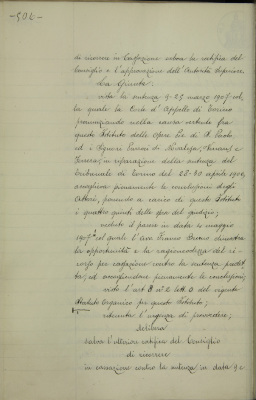 -504-
di ricorrere in Cassazione salva la ratifica del
Consiglio e l'approvazione dell'Autorità Superiore.
La Giunta:
vista la sentenza 9-23 marzo 1905 col
la quale la Corte d'Appello di Torino
pronunziando nella causa vertente fra
questo Istituto delle Opere Pie di S. Paolo,
ed i Signori
in riparazione della sentenza del
Tribunale di Torino del 1904,
accoglieva pienamente le conclusioni degli
Attori, ponendo a carico di questo Istituto
i quattro quinti delle spese del giudizio;
veduto il parere in data 6 maggio
1905 col quale l'Avv. dimostra
la opportunità e la ragionevolezza del ri-
corso per cassazione contro la sentenza predet-
ta, ed accogliendone pienamente le conclusioni;
visto l'art. 8 n° 2 lett. del vigente
Statuto Organico per questo Istituto;
ritenuta l'urgenza di provvedere;
delibera
salva l'ulteriore ratifica del Consiglio
di ricorrere
in cassazione contro la sentenza, in data 9 e